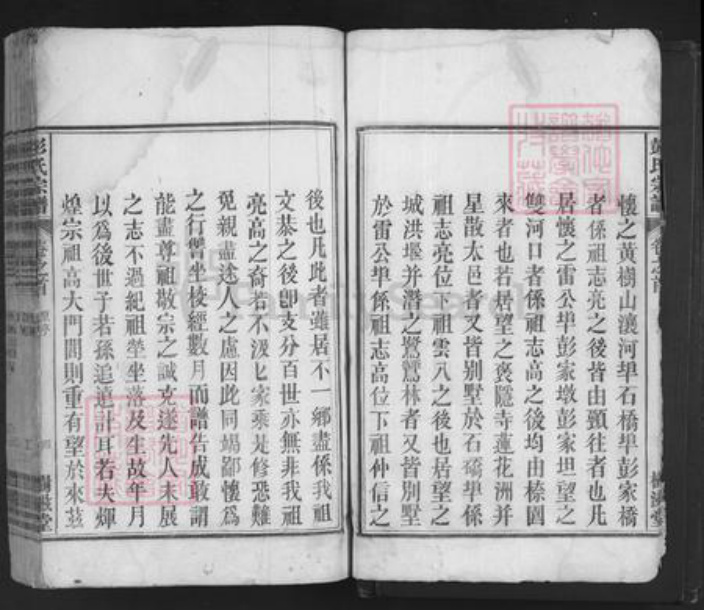 彭氏宗譜
卷之首
懷之黃樹山瀼河垾石橋垾彭家橋
者係祖志亮之後皆由顗往者也凡
居懷之雷公垾彭家墩彭家坦望之
雙河口者係祖志高之後均由
來者也若居望之喪隱寺蓮花洲并
星散太邑者又皆別墅於石磯垾係
祖志亮位下祖雲八之後也居望之
城洪堰并潛之鷺鷥林者又皆別墅
於雷公垾係祖志高位下祖仲信之
後也凡此者雖居不一鄉盡係我祖
文恭之後卽支分百世亦無非我祖
亮高之裔若不汲匕家乘是修恐難
免親盡途人之慮因此同竭鄙懷爲
之行嚮坐稜經數月而譜告成敢謂
能盡尊祖敬宗之誠克遂先人未展
之志不過紀祖塋坐落及生故年月
以爲後世子若孫追遠計耳若夫煇
煌宗祖高大門閭則重有望於來茲
彭氏宗譜
卷之首